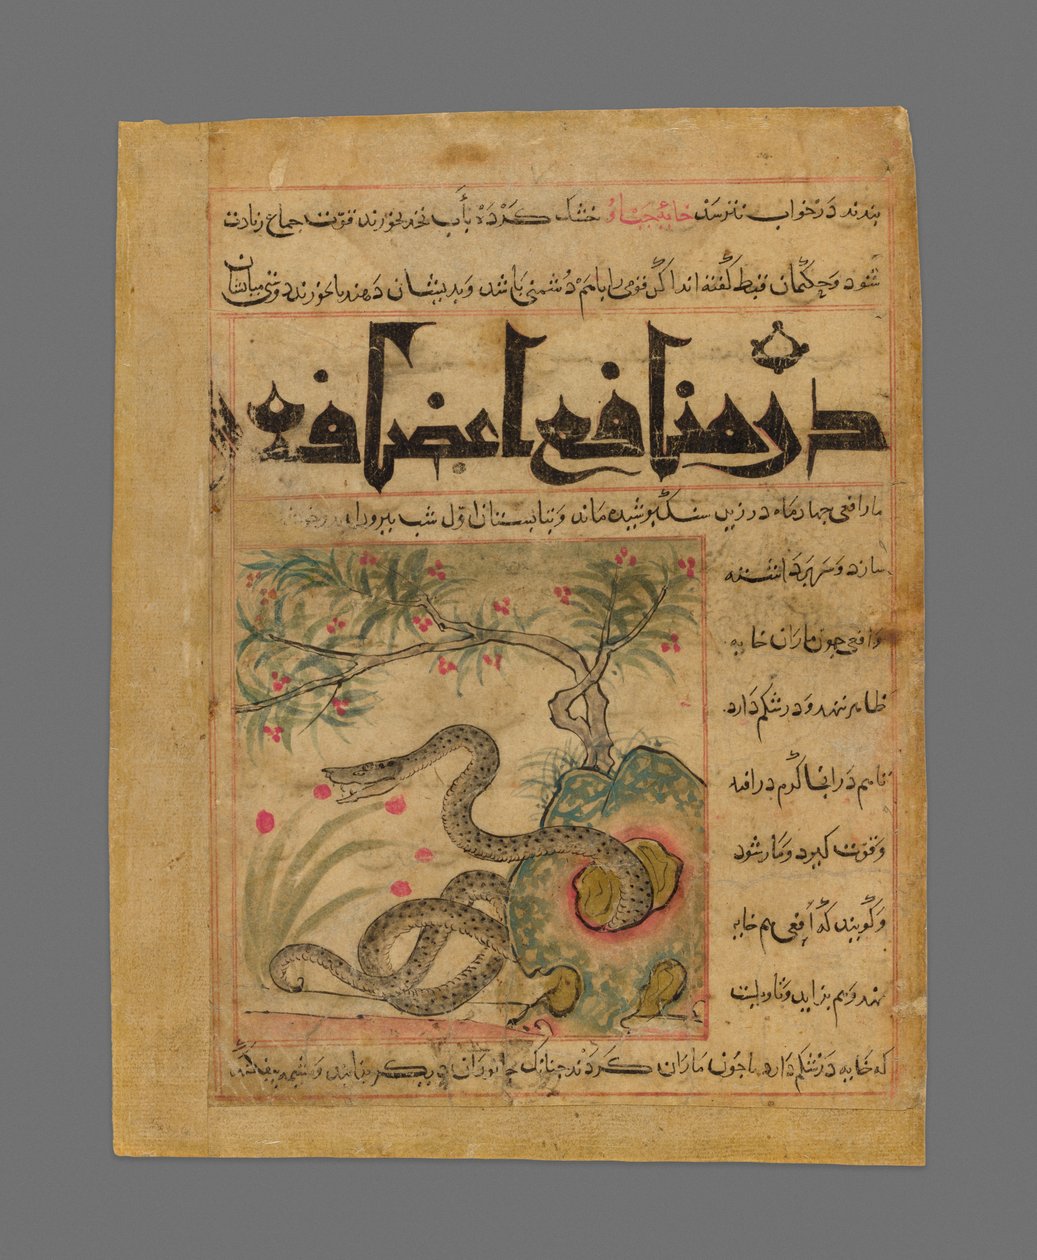 بندند در خواب نترسد خایهٔ حباو خشک کرده بآب نخود بخورند قوّت جماع زیادت
شود و حکیمان قبط گفته اند اگر قومی را با هم دشمنی باشد و بدیشان دهند با خورند دوستی میانشان
در منافع اعضا افعی
مار افعی چهار ماه در زمین سنگ پوشیده ماند و بتابستان اوّل شب بیرون آید و درخت
سازد و سر برداشته
و افعی چون ماران خایه
ظاهر ننهد و در شکم دارد
تا هم در آنجا گرم در افتد
و قوّت گیرد و مار شود
و گویند که افعی هم خایه
نهد و هم بزاید و تاویلست
که خایه در شکم دارد ماچون ماران کردند چنانک جانوران دیگر